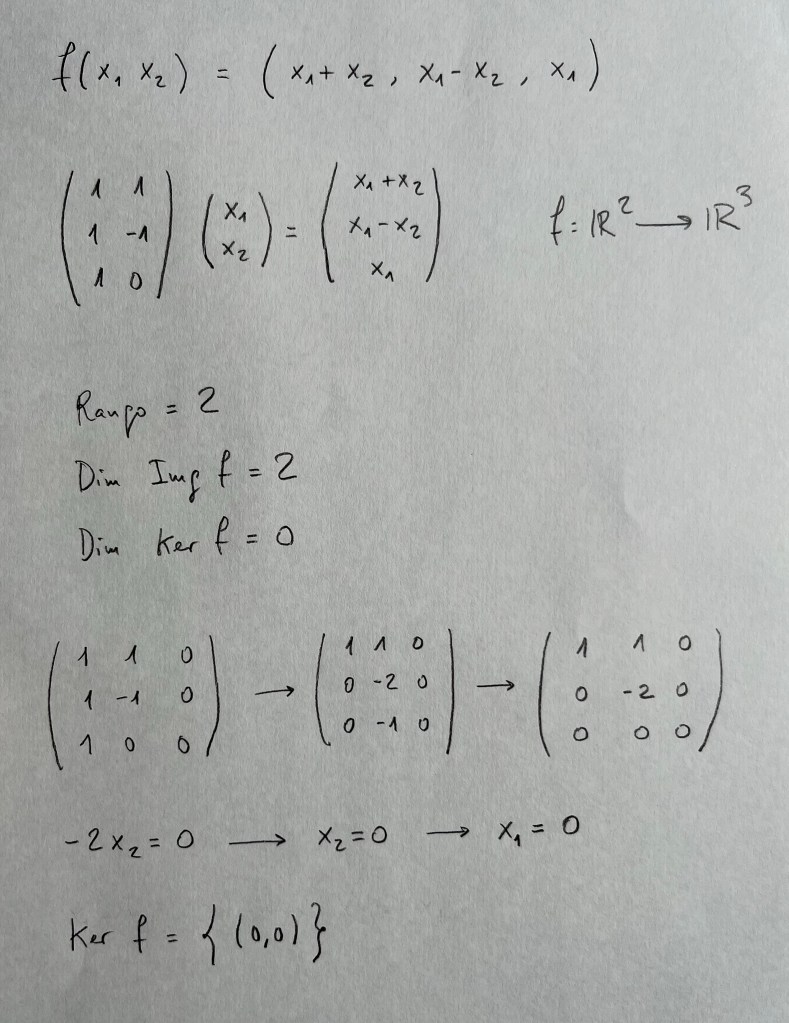 f(x₁ x₂) = (x₁+x₂, x₁-x₂, x₁)
(1 1
1 -1
1 0) (x₁
x₂) = (x₁+x₂
x₁-x₂
x₁)
f: ℝ² → ℝ³
Rango = 2
Dim Img f = 2
Dim Ker f = 0
(1 1 0
1 -1 0
1 0 0) → (1 1 0
0 -2 0
0 -1 0) → (1 1 0
0 -2 0
0 0 0)
-2x₂ = 0 → x₂ = 0 → x₁ = 0
Ker f = {(0,0)}